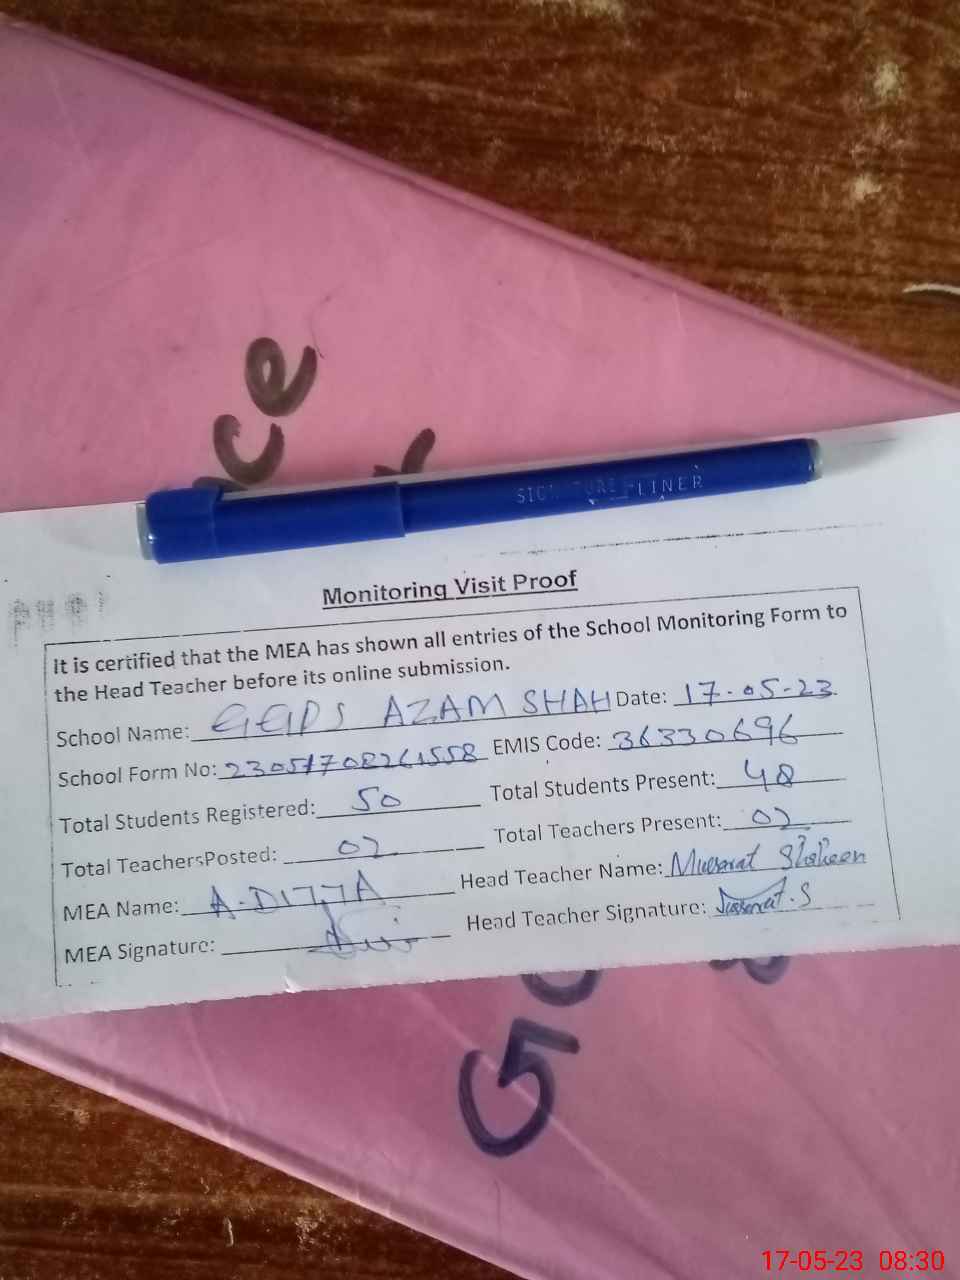 ce
SIGNATURE LINER
Monitoring Visit Proof
It is certified that the MEA has shown all entries of the School Monitoring Form to
the Head Teacher before its online submission.
School Name: GGPS AZAM SHAH Date: 17-05-23
School Form No: 23051708261558 EMIS Code: 36330696
Total Students Registered: 50 Total Students Present: 48
Total TeachersPosted: 02 Total Teachers Present: 02
MEA Name: A-DITTA Head Teacher Name: Musarat Shaheen
MEA Signature: Head Teacher Signature: Musarat.S
G
17-05-23 08:30